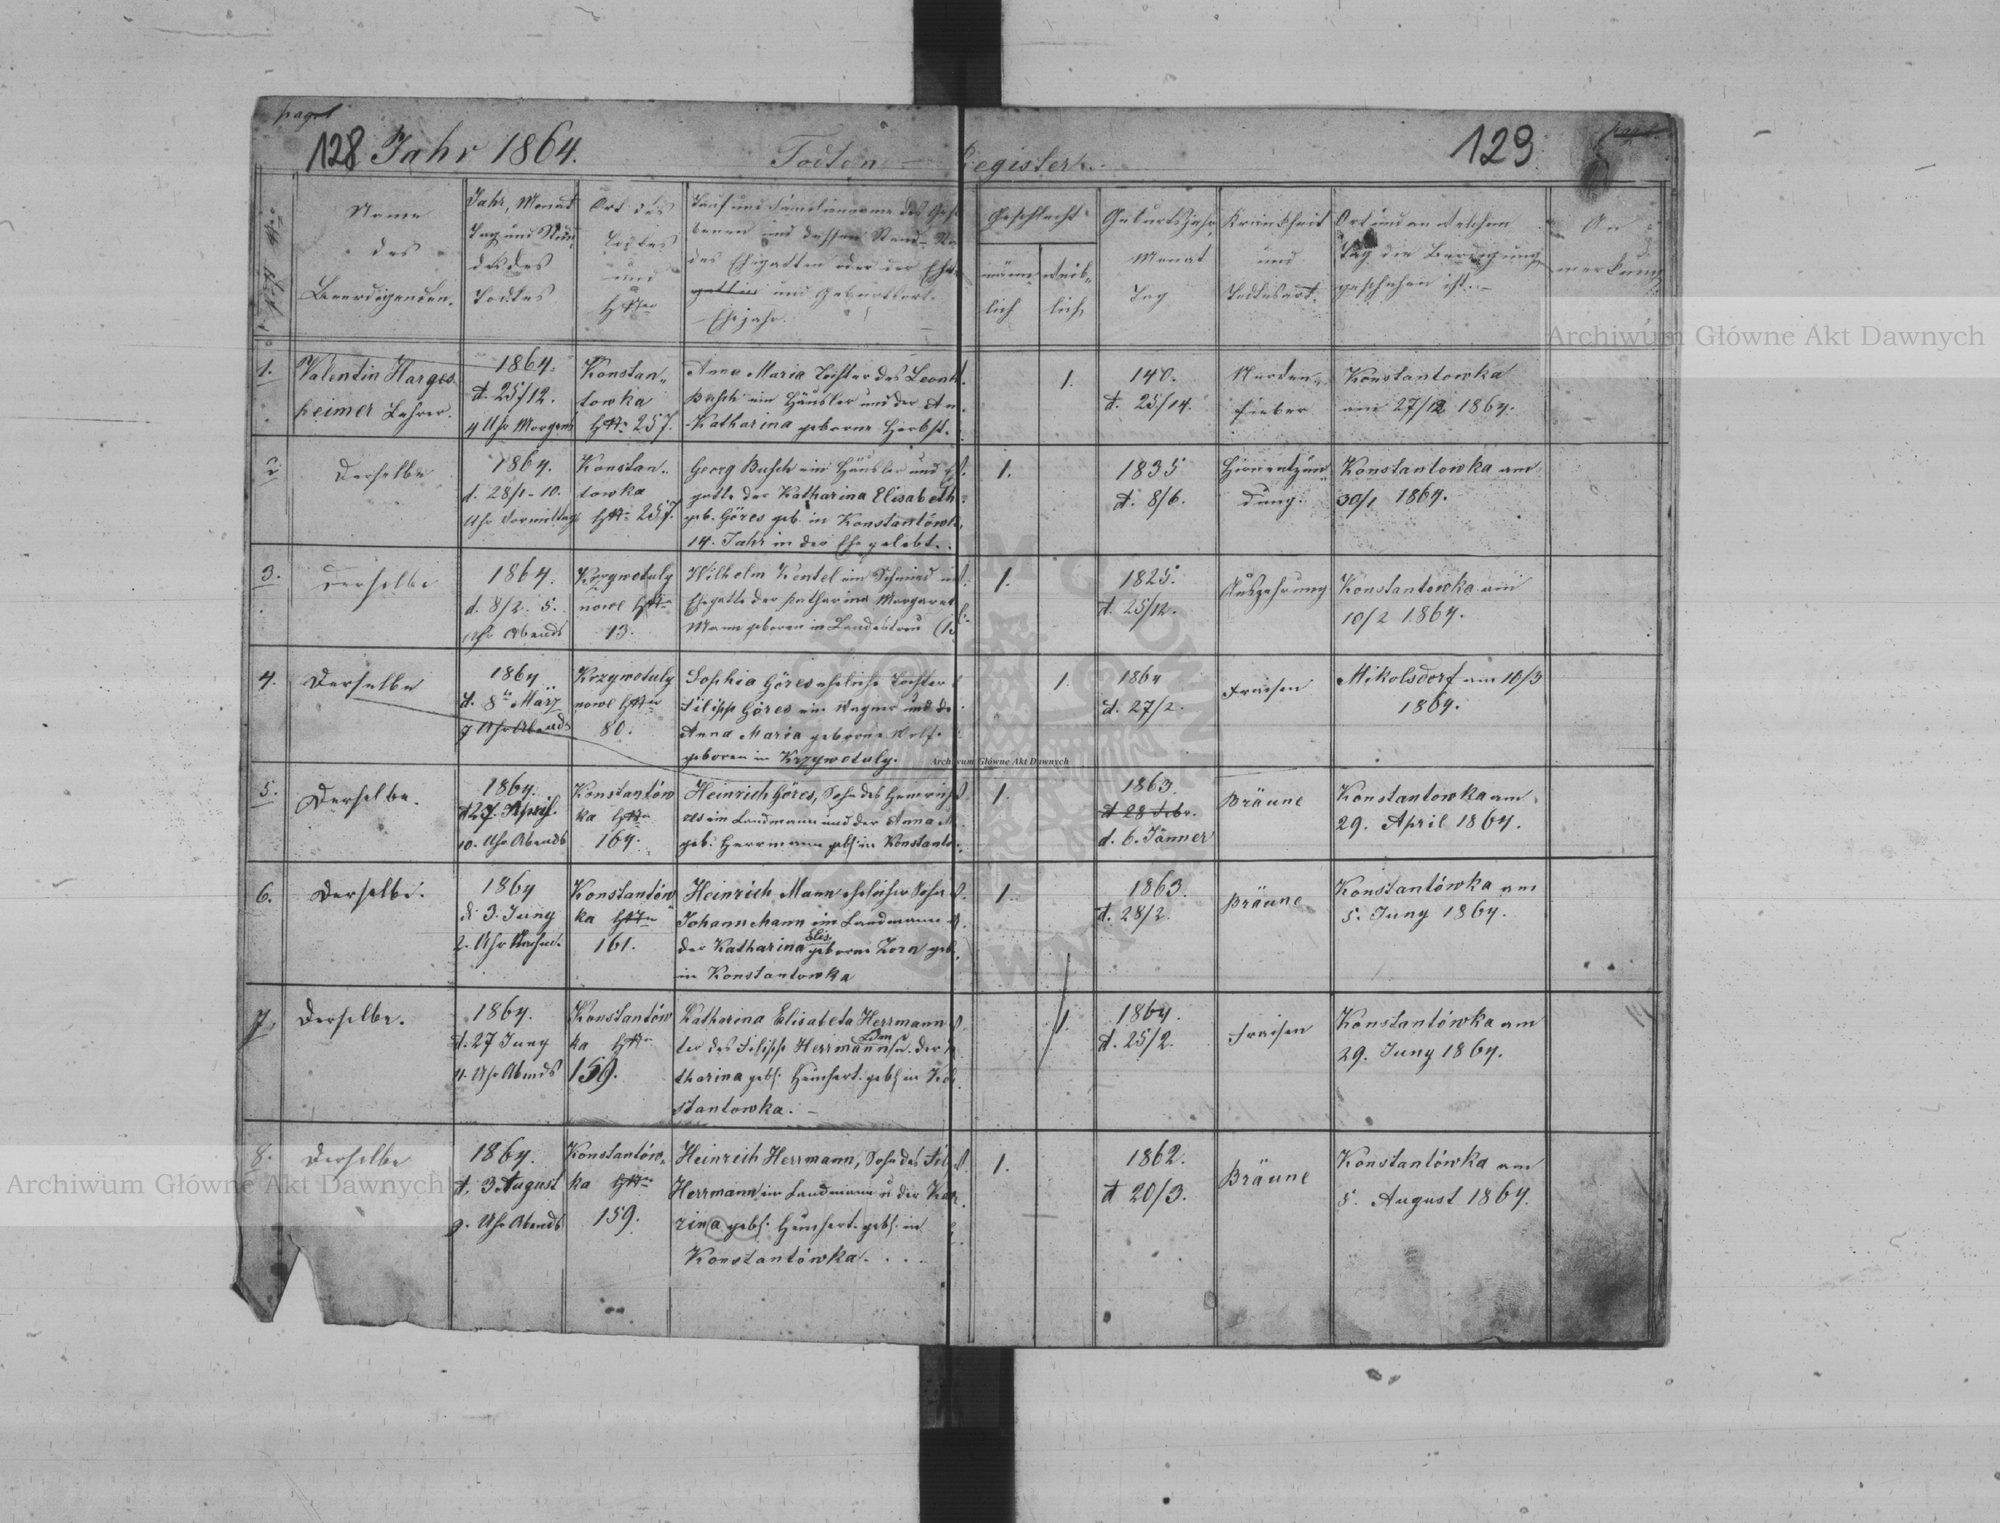 pag.
128 Jahr 1864. Todten-Register. 129
No
Name
des
Beerdigenden.
Jahr, Monat
Tag und Stun
de des
Todtes
Ort des
Todtes
und
HNro
Tauf und Familienname des Gestor
benen und dessen Stand
des Ehegatten oder der Ehe
gattin und Geburtsort.
Ehejahr.
Geschlecht
männ
lich
weib
lich
Geburtsjahr
Monat
Tag
Krankheit
und
Todtesart.
Ort und an welchem
Tag die Beerdigung
geschehen ist.
An
merkung
1. Valentin Harges
heimer Lehrer.
1864.
d. 25/12.
4 Uhr Morgens
Konstan
towka
HNro 257.
Anna Maria Tochter des Leonh
Busch ein Häusler und der An
Katharina geborne Herbst.
1.
d. 25/
Nerden
fieber
Konstantowka
am 27/12 1864.
2. Derselbe
1864.
d. 28/1 - 10.
Uhr Vormittag
Konstan
towka
HNro 257.
Georg Busch ein Häusler und Eh
gatte der Katharina Elisabeth
geb. Göres geb. in Konstantówk
14. Jahr in der Ehe gelebt.
1.
1835
d. 8/6.
Hirnentzün
dung.
Konstantowka am
30/1 1864.
3. Derselbe
1864.
d. 8/2. 5.
Uhr Abends
Krzywotuly
nowe HNro
13.
Wilhelm Kentel ein Schmied
Ehegatte der Katharina Margaret
Mann geboren in Landestreu
1.
1825.
d. 25/12.
Auszehrung
Konstantowka am
10/2 1864.
4. Derselbe
1864
d. 8ten März
7 Uhr Abends
Krzywotuly
nowe HNro
80.
Sophia Göres eheliche Tochter
Filipp Göres ein Wagner und de
Anna Maria geborne Wolf.
geboren in Krzywotuly.
1.
1864
d. 27/2.
Fraisen
Mikolsdorf am 10/3
1864.
5. Derselbe.
1864.
d 27. April.
10. Uhr Abends
Konstantów
ka HNro
164.
Heinrich Göres, Sohn des Heinrich
ein Landmann und der Anna M
geb: Herrmann geb: in Konstanto
1.
1863.
d 28 Febr.
d. 6. Jänner
Bräune
Konstantowka am
29. April 1864.
6. Derselbe.
1864
d. 3. Juny
2. Uhr Nachm.
Konstantów
ka HNro
161.
Heinrich Mann ehelicher Sohn d
Johann Mann ein Landmann
der Katharina Elis. geborne Zorn geb.
in Konstantowka
1.
1863.
d. 28/2.
Bräune
Konstantówka am
5. Juny 1864.
7. Derselbe.
1864.
d. 27 Juny
11. Uhr Abends
Konstantów
ka HNro
159.
Katharina Elisabeta Herrmann
ter des Filipp Herrmann u. der K
tharina geb: geb: in Kon
stantowka.
1.
1864.
d. 25/2.
Fraisen
Konstantówka am
29. Juny 1864.
8. Derselbe
1864.
d. 3. August
9. Uhr Abends
Konstantów
ka HNro
159.
Heinrich Herrmann, Sohn des Fil
Herrmann ein Landmann u. der Kat
rina geb: geb: in
Konstantówka. . . .
1.
1862.
d 20/3.
Bräune
Konstantówka am
5. August 1864.
Archiwum Główne Akt Dawnych
Archiwum Główne Akt Dawnych
Archiwum Główne Akt Dawnych